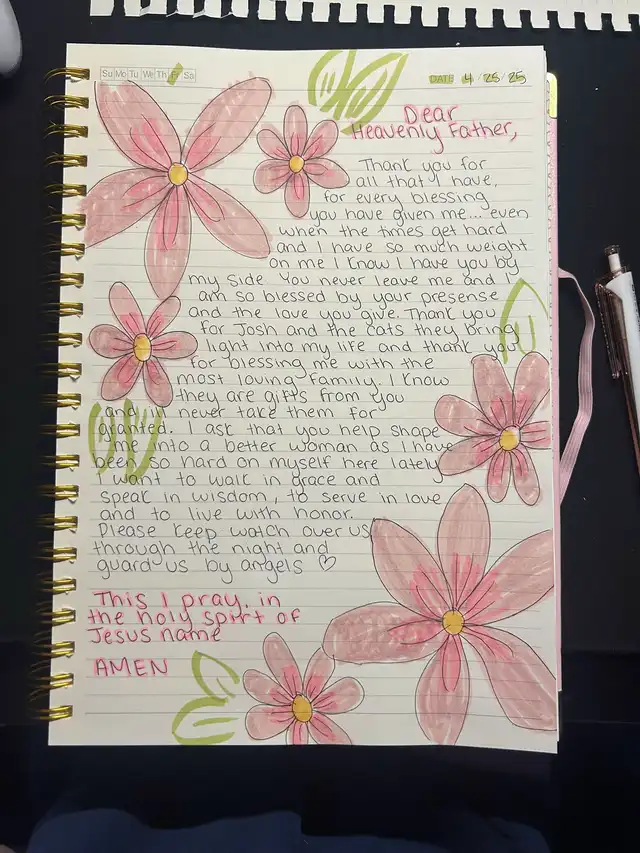 Su Mo Tu We Th Fr Sa
DATE 4/25/25
Dear
Heavenly Father,
Thank you for
all that I have,
for every blessing
you have given me... even
when the times get hard
and I have so much weight
on me I know I have you by
my side. You never leave me and I
am so blessed by your presense
and the love you give. Thank you
for Josh and the cats they bring
light into my life and thank you
for blessing me with the
most loving family. I know
they are gifts from you
and never take them for
granted. I ask that you help shape
me into a better woman as I have
been so hard on myself here lately
I want to walk in grace and
speak in wisdom, to serve in love
and to live with honor.
Please keep watch over us
through the night and
guard us by angels ♡
This I pray, in
the holy spirt of
Jesus name
AMEN